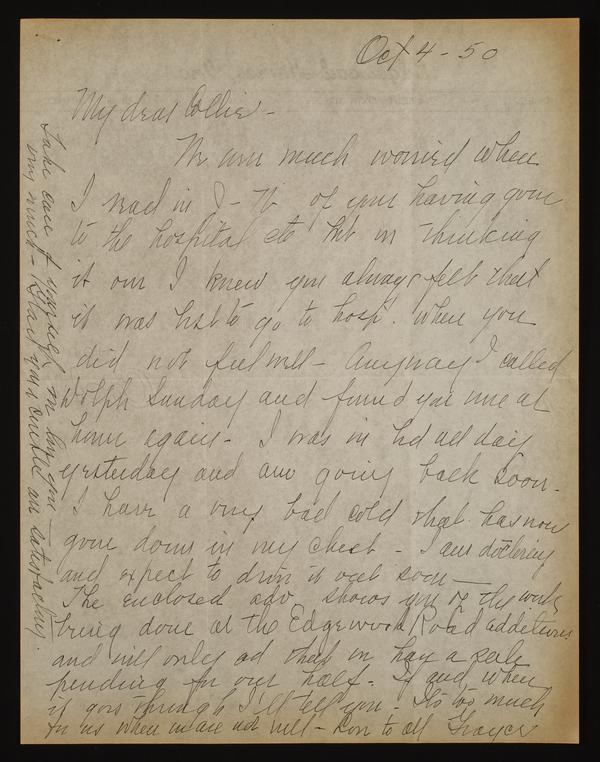 Oct 4 - 50
My dear Collier -
We were much worried when
I read in of your having gone
to the hospital etc but in thinking
it over I knew you always felt that
it was best to go to hosp. when you
did not feel well - Anyway I called
Dolph Sunday and found you were at
home again - I was in bed all day
yesterday and am going back soon -
I have a very bad cold that has now
gone down in my chest - I am doctoring
and expect to drive it out soon -
The enclosed adv shows you of the work
being done at the Edgewood Road additions
and will only ad that we have a sale
pending for our half - If and when
it goes through I'll tell you - Its too much
for us when we are not well - Love to all
Take care of yourself we love you
very much - Know yours are satisfactory.